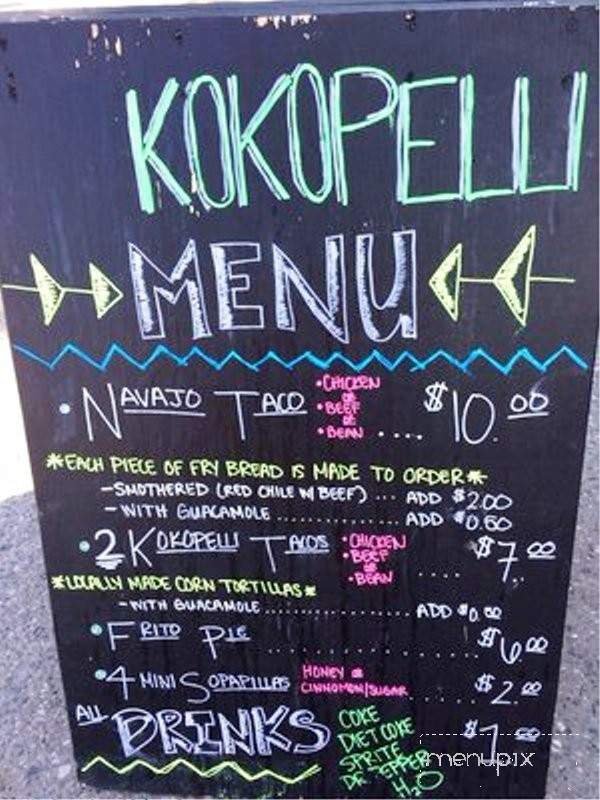 KOKOPELLI
MENU
• NAVAJO TACO • CHICKEN OR • BEEF OR • BEAN .... $10.00
*EACH PIECE OF FRY BREAD IS MADE TO ORDER*
- SMOTHERED (RED CHILE W/ BEEF) ... ADD $2.00
- WITH GUACAMOLE .............. ADD $0.50
• 2 KOKOPELLI TACOS • CHICKEN • BEEF OR • BEAN .... $7.00
*LOCALLY MADE CORN TORTILLAS*
- WITH GUACAMOLE .............. ADD $0.50
• FRITO PIE .............. $6.00
• 4 MINI SOPAPILLAS HONEY OR CINNOMON/SUGAR ...... $2.00
ALL DRINKS $1.00
COKE
DIET COKE
SPRITE
DR. PEPPER
H2O
menupix